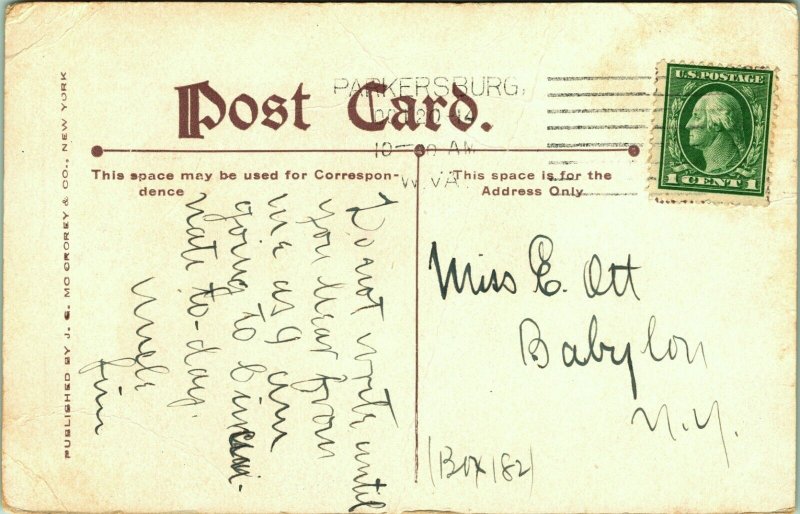 Post Card.
PARKERSBURG,
OCT 20 14
10— AM
W.VA.
U.S. POSTAGE
1 CENT 1
This space may be used for Correspon-
dence
This space is for the
Address Only
Do not write until
you hear from
me as I am
going to Cincin-
nati to-day.
Uncle
Jim
Miss E. Ott
Babylon
N.Y.
(Box 182)
PUBLISHED BY J. G. MC CROREY & CO., NEW YORK